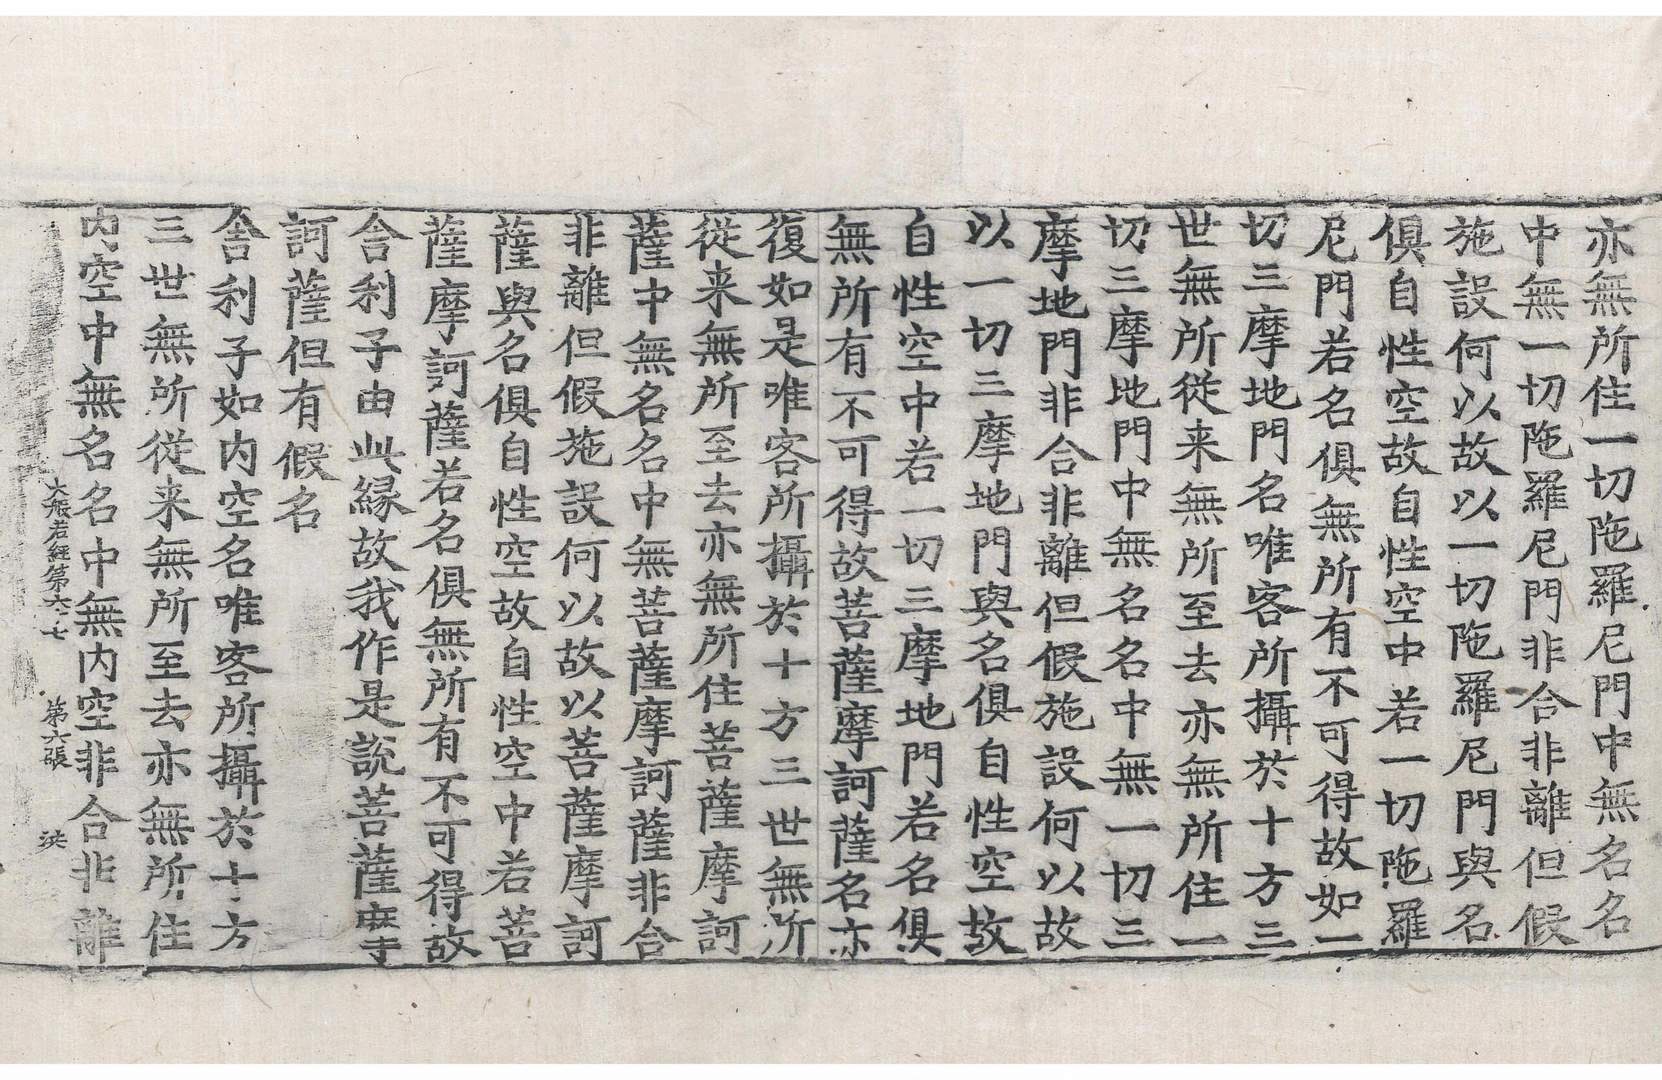 亦無所住一切陁羅尼門中無名名
中無一切陁羅尼門非合非離但假
施設何以故以一切陁羅尼門與名
俱自性空故自性空中若一切陁羅
尼門若名俱無所有不可得故如一
切三摩地門名唯客所攝於十方三
世無所從来無所至去亦無所住一
切三摩地門中無名名中無一切三
摩地門非合非離但假施設何以故
以一切三摩地門與名俱自性空故
自性空中若一切三摩地門若名俱
無所有不可得故菩薩摩訶薩名亦
復如是唯客所攝於十方三世無所
從来無所至去亦無所住菩薩摩訶
薩中無名名中無菩薩摩訶薩非合
非離但假施設何以故以菩薩摩訶
薩與名俱自性空故自性空中若菩
薩摩訶薩若名俱無所有不可得故
舍利子由此緣故我作是說菩薩摩
訶薩但有假名
舍利子如内空名唯客所攝於十方
三世無所從来無所至去亦無所住
内空中無名名中無内空非合非離
大般若經第六十七 第六張 洪